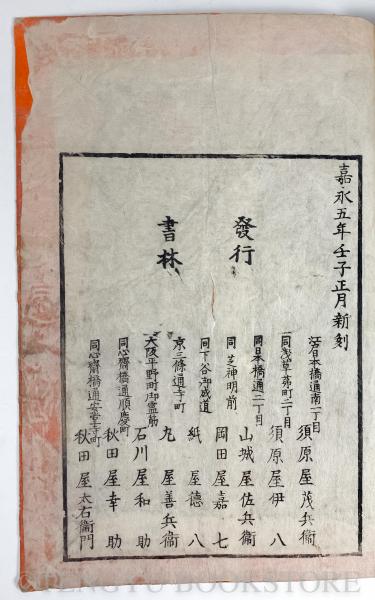 嘉永五年壬子正月新刻
發行
書林
江戸日本橋通南一丁目
須原屋茂兵衞
同淺草茅町二丁目
須原屋伊八
同日本橋通二丁目
山城屋佐兵衞
同芝神明前
岡田屋嘉七
同下谷御成道
紙屋德八
京三條通寺町
丸屋善兵衞
大阪平野町御霊筋
石川屋和助
同心齋橋通順慶町
秋田屋幸助
同心齋橋通安堂寺町
秋田屋太右衞門
CHENGYU BOOKSTORE